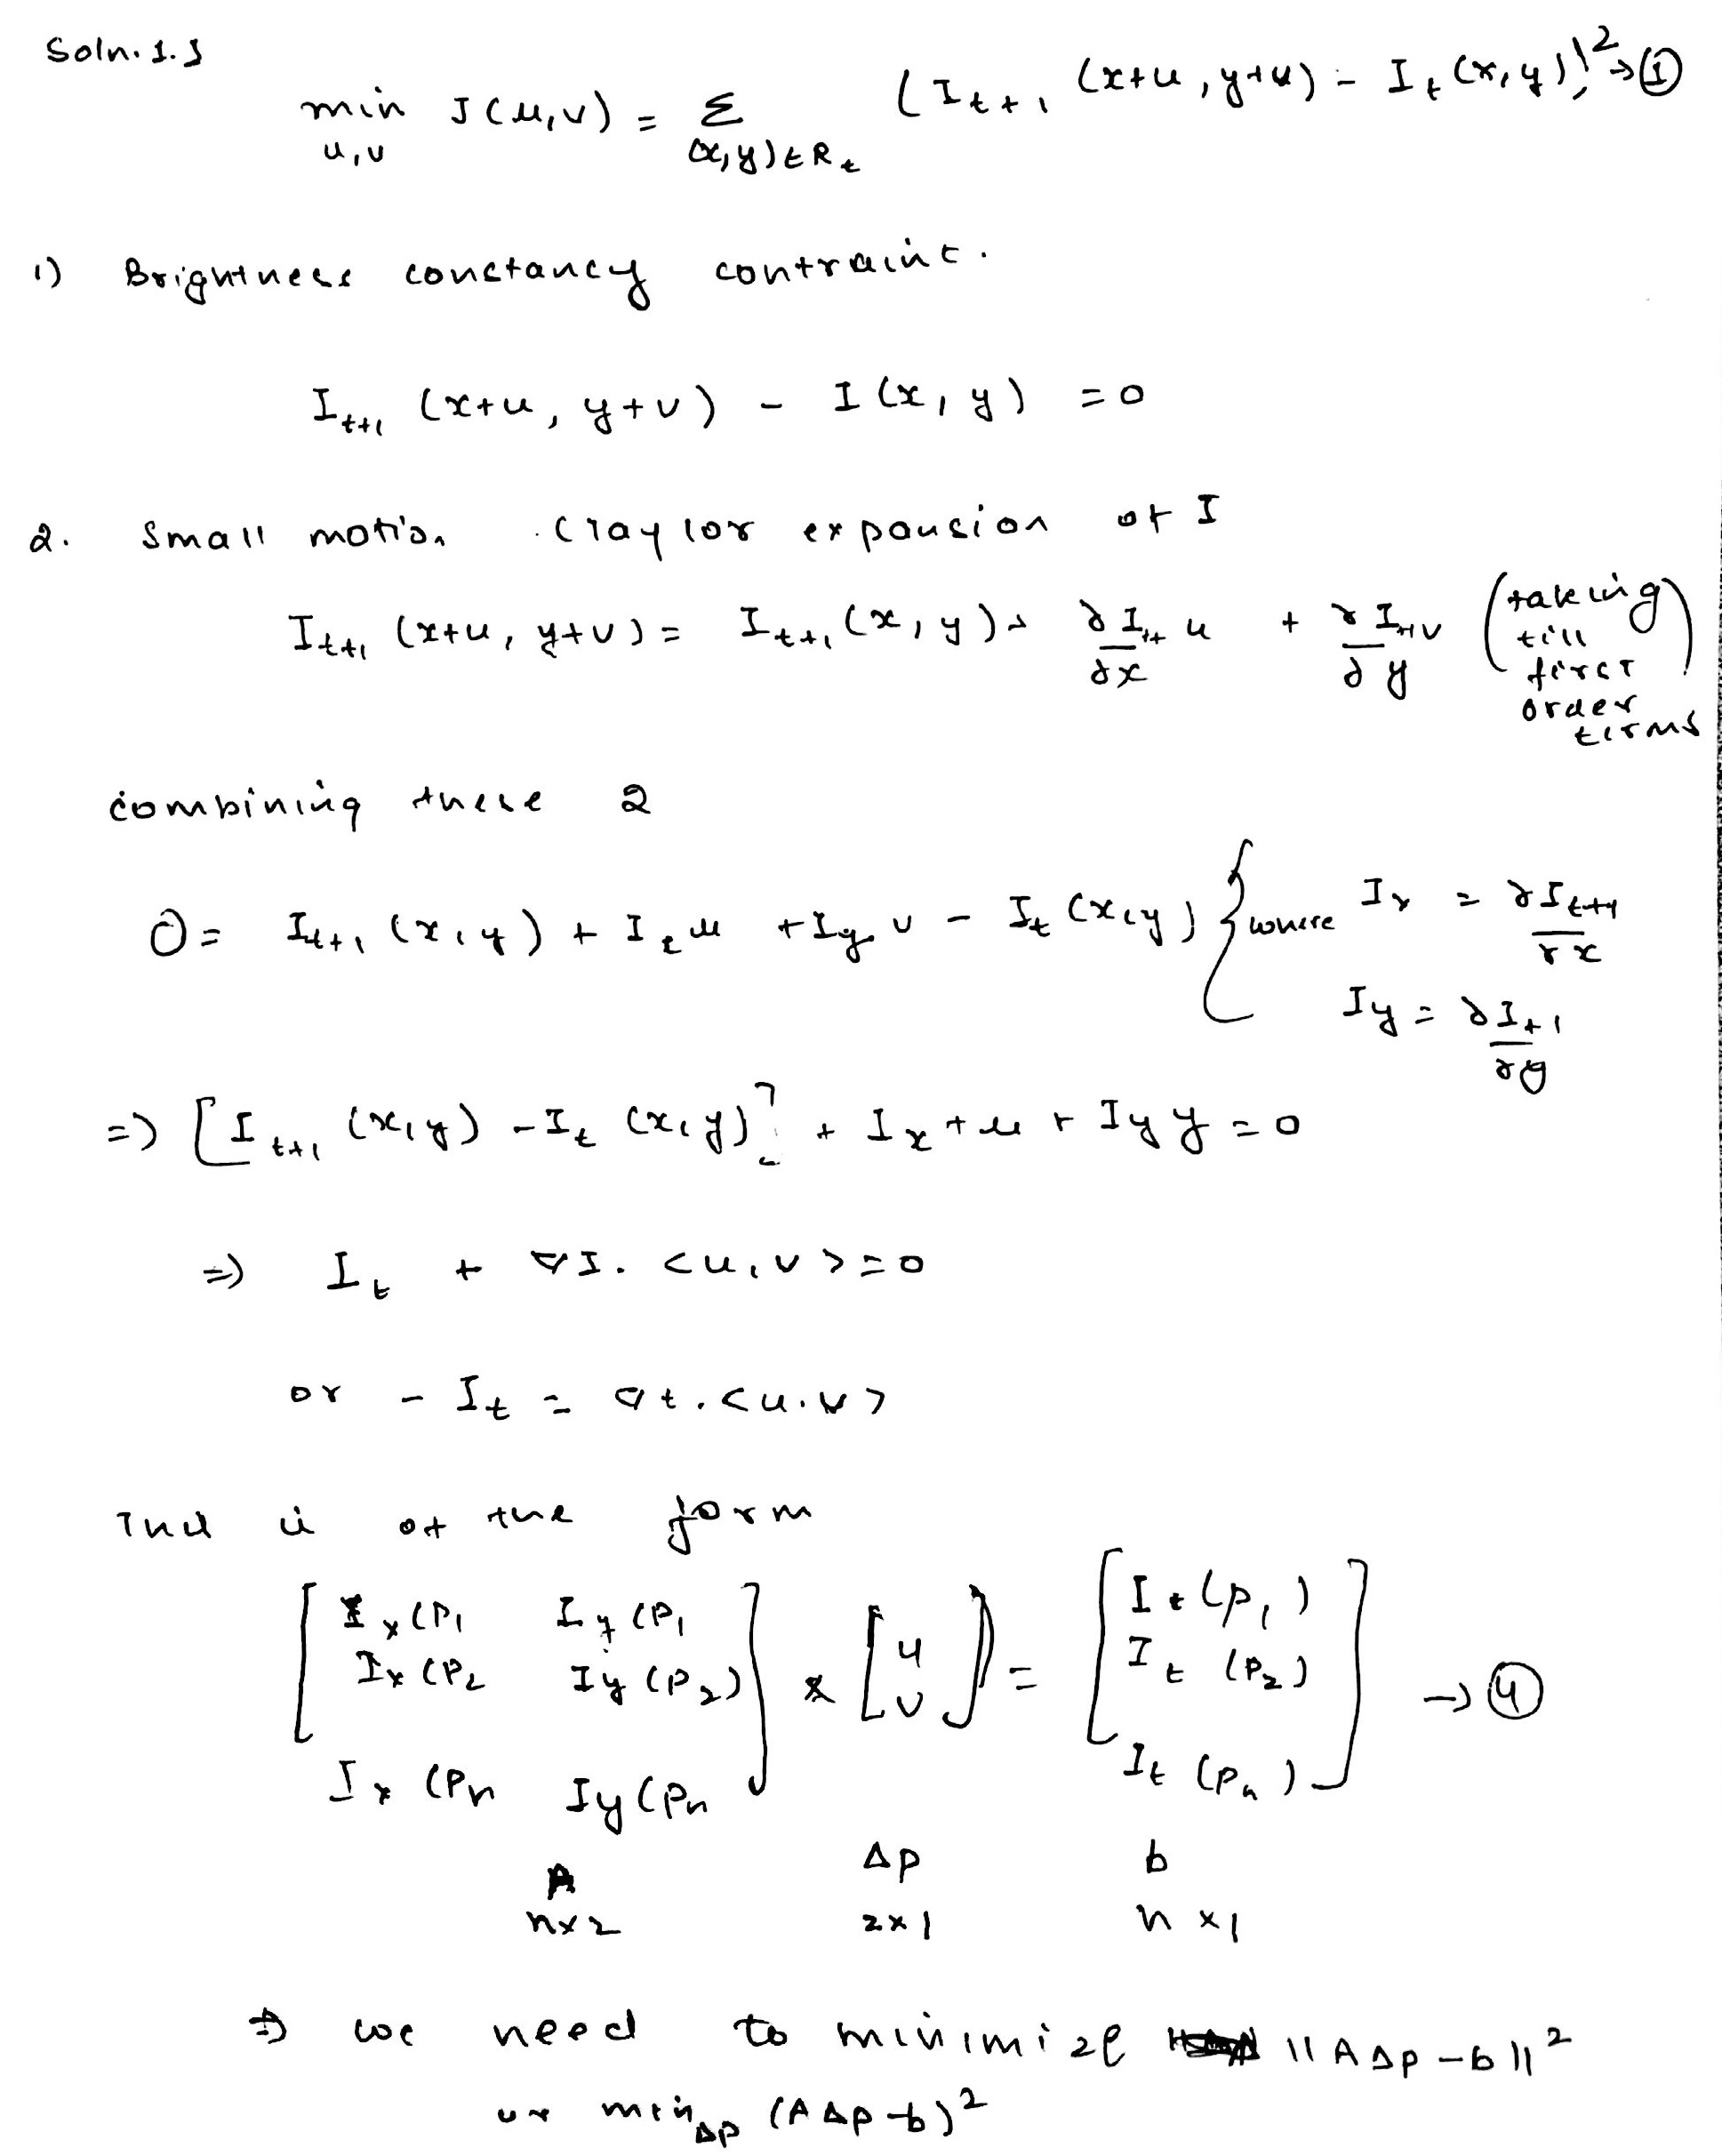 Soln. 1.1
min J(u,v) = Σ (I_{t+1} (x+u, y+u) - I_t (x,y))² → ①
u,v (x,y) ∈ R_t
1) Brightness constancy contraint.
I_{t+1} (x+u, y+v) - I(x,y) = 0
2. Small motion. (Taylor expansion of I
I_{t+1} (x+u, y+v) = I_{t+1} (x,y) + ∂I_{t+1}/∂x u + ∂I_{t+1}/∂y v (taking till first order terms)
combining these 2
0 = I_{t+1} (x,y) + I_x u + I_y v - I_t (x,y) { where I_x = ∂I_{t+1}/∂x
I_y = ∂I_{t+1}/∂y
=> [I_{t+1} (x,y) - I_t (x,y)] + I_x + u + I_y y = 0
=> I_t + ∇I. <u,v> = 0
or - I_t = ∇t. <u.v>
This is of the form
[ I_x(P_1 I_y(P_1 ] × [ u ] = [ I_t(p_1) ]
I_x(P_2 I_y(P_2) v I_t(p_2) → ④
I_x(P_n I_y(P_n I_t(p_n)
A Δp b
n×2 2×1 n×1
=> we need to minimize ||AΔp - b||²
or min_{Δp} (AΔp - b)²